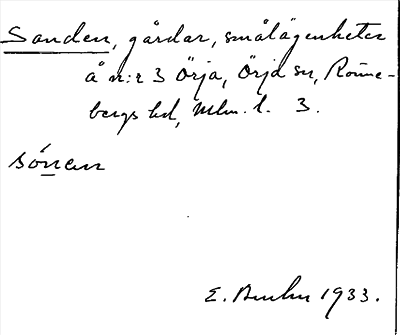 Sanden, gårdar, smålägenheter
å n:r 3 Örja, Örja sn, Rönne-
bergs hd, Mlm. l. 3.
sónen
E. 1933.